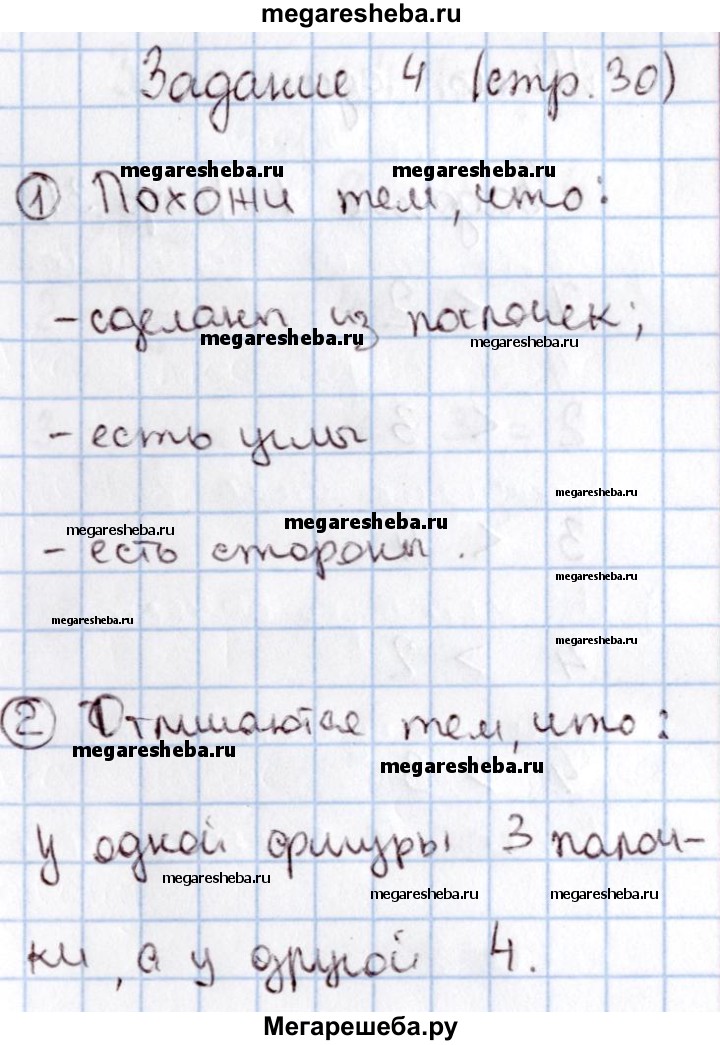 megaresheba.ru
Задание 4 (стр. 30)
megaresheba.ru megaresheba.ru
① Похожи тем, что:
- сделаны из палочек;
megaresheba.ru megaresheba.ru
- есть углы
megaresheba.ru
megaresheba.ru megaresheba.ru
- есть стороны.
megaresheba.ru
megaresheba.ru
megaresheba.ru
② Отличаются тем, что:
megaresheba.ru megaresheba.ru
у одной фигуры 3 палоч-
megaresheba.ru megaresheba.ru megaresheba.ru
ки, а у другой 4.
Мегарешеба.ру